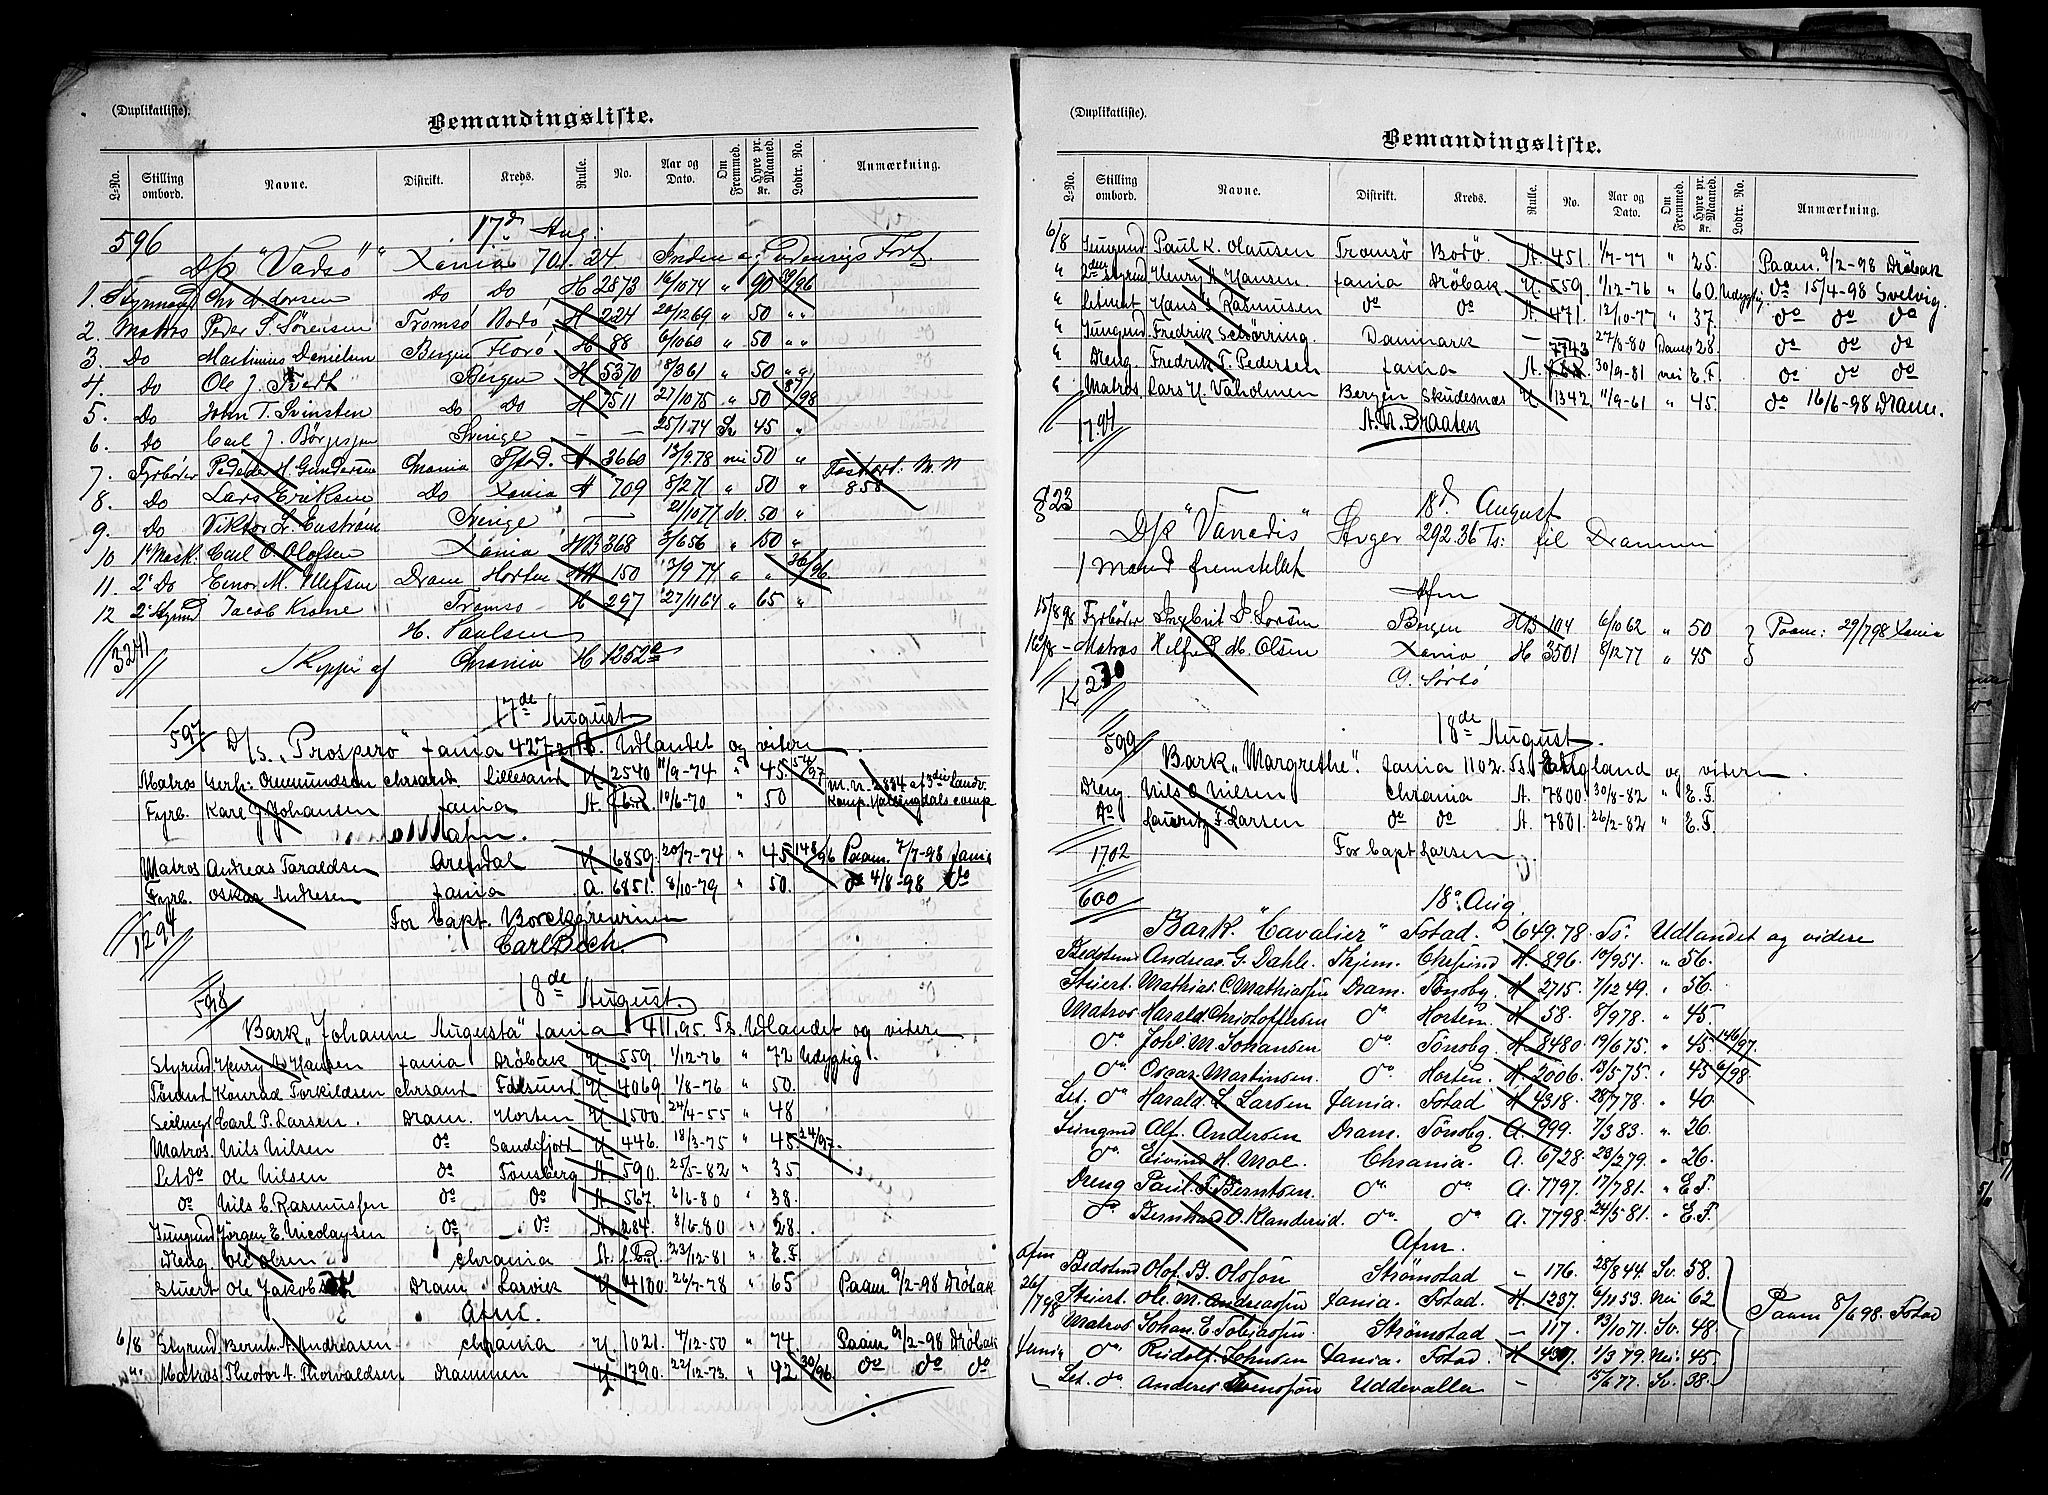 (Duplikatliste).
Bemandingsliste.
L-No. Stilling ombord. Navne. Distrikt. Kreds. Rulle. No. Aar og Dato. Om Fremmed. Hyre pr. Maaned. Kr. Lodtr. No. Anmærkning.
596 17d Aug:
D/s "Vadsö" Xania 701.24 Inden og Udenrigs Fart.
1. Styrmand Do Do H 2873 16/10 74 " 90 39/96
2. Matros Peder S. Sörensen Tromsö Bodö H 224 20/12 69 " 50 " "
3. Do Martinius Danielsen Bergen Florö H 88 6/10 60 " 50 " "
4. Do Ole J. Tvedt Bergen H 5370 18/3 61 " 50 " "
5. Do John T. Svinsten Do Do H 7511 27/10 75 " 50 87/98
6. Do Carl J. Börjesjon Sverige — — 25/1 74 Sv 45 "
7. Fyrböter Peder H. Gundersen Chrania Fstad. A 3660 13/9 78 nei 50 " M. N 858
8. Do Lars Eriksen Do Xania A 709 8/2 71 " 50 "
9. Do Viktor L. Enström Sverige — 21/10 77 sv. 50 "
10 1e Mask. Carl O. Olofsen Xania HB 368 3/6 56 " 150 "
11. 2e Do Einor M. Ellefsen Dram Horten HM 150 13/9 74 " " 36/96
12 2e Styrmd Jacob Krone Tromsö H 297 27/11 64 " 65 "
H. Paulsen
3271
Skipper af Chrania H 1252 a
17de August
597 D/s. "Prospero" Xania 427,28. Udlandet og videre.
Matros Gerh. Ommundsen Chrsand. Lillesand H 2540 11/9-74 " 45. 54/97 M.N. 2884 af 3die Landv.
Fyrb. Karl G. Johansen Xania A. f.B.R. 10/6-70 " 50 Komp. Hallingdals Comp
Afm.
Matros Andreas Taraldsen Arendal H 6859. 20/7-74 " 45 148/96 Paam. 7/7-98 Xania
Fyrb. Oskar Andresen Xania A. 6851. 8/10-79 " 50. do 4/8-98 do
For Capt. Borchgrevink
Carl Bech.
1294
18de August.
598
Bark "Johanne Augusta" Xania 411.95. Ts. Udlandet og videre
Styrmd Henry A Hansen Xania Dröbak H. 559. 1/12-76 " 72 Udygtig.
Tömmt Konrad Torkildsen Chrsand Farsund H 4069 1/8-76 " 50.
Seilmgt Carl P. Larsen. Dram. Horten H 1500. 24/4-55 " 48
Matros. Nils Nilsen do Sandefjord H 446. 18/3-75 " 45 24/97.
Letdo Ole Nilsen do Tönsberg A 590. 25/5-82 " 35.
do Nils C. Rasmussen do do A 567. 6/6-80 " 38.
Jungmd Jörgen E. Nicolaysen do do A 284. 8/6-80 " 28.
Dreng. Ole Olsen Chrania A. f.B.R. 23/12-81 " E.F
Stuert Ole Jakobsen Dram Larvik H 4100. 26/7-78 " 65 Paam 9/2-98 Dröbak
Afm.
6/8 Styrmd Bernh. A. Andreasen Chrania H. 1021. 4/12-50 " 74. Paam 9/2-98 Dröbak
" Matros Theodor A. Thorvaldsen Drammen H 1790. 22/12-73. " 92 30/96 do do do
(Duplikatliste).
Bemandingsliste.
L-No. Stilling ombord. Navne. Distrikt. Kreds. Rulle. No. Aar og Dato. Om Fremmed. Hyre pr. Maaned. Kr. Lodtr. No. Anmærkning.
6/8 Jungmd Paul K. Olausen Tromsö Bodö A. 451. 1/7-77 " 25. Paam. 9/2-98 Dröbak
" 2den Styrmd Henry A. Hansen Xania Dröbak H. 559. 1/12-76 " 60. Udygtig do 15/4-98 Svelvig.
" Letmat Hans G. Rasmussen do do A. 471. 12/10-77 " 37. do do do
" Jungmd Fredrik Schörring. Danmark — 27/8-80 Dansk 28. do do do
" Dreng. Fredrik T. Pedersen Xania A. 7743 30/9-81 nei E.F. do do do
" Matros Lars H. Vaholmen Bergen Skudesnæs H 1342. 11/9-61 " 45. do 16/6-98 Dram.
1797 A. M. Braaten
823 18d August
D/s "Vanadis" Svger 292.36 Ts: til Drammen
1 mand fremstillet
Afm
15/8 98 Fyrböter Ingebrit P. Larsen Bergen HB 104 6/10 62 " 50 Paam: 29/7 98 Xania
16/8 - Matros Helfred M. Olsen Xania H 3501 8/12 77 " 45
K 230 G. Sörbö
599 18de August.
Bark "Margrethe". Xania 1102.55. England og videre.
Dreng. Nils O Nilsen Chrania A. 7800. 30/8-82 " E.F.
do Lauritz F. Larsen do do A. 7801. 26/2-82 " E.F.
1702 For Capt Larsen
600 18d Aug.
Bark. "Cavalier" Fstad. 649.78. Ts. Udlandet og videre
Bedstmd Andreas G. Dahle Thjem. Chrsund H. 896. 10/9 51. " 56.
Stuert. Mathias C. Mathiassen Dram. Tönsbg. H 2715. 7/12 49. " 56.
Matros Harald. Christoffersen do Horten H 58. 8/9 78. " 45.
do. Johs. M. Johansen do Tönsbg H. 8480 19/6 75. " 45. 146/97.
do. Oscar Martinsen. do Horten. H. 2006. 13/5 75. " 45 6/98.
Let. do Harald. L. Larsen Xania. Fstad H 4318. 28/7 78. " 40.
Jungmd Alf. Andersen Dram. Tönsbg. A. 999. 7/3 83. " 26.
do. Eivind H. Moe. Chrania. A. 6728. 23/2 79. " 26.
Dreng Paul. F. Berntsen. do. do. A. 7797. 17/7 81. " E.F.
do. Bernhard O. Klanderud. do. do A. 7798. 24/5 81. " E.F.
Afm.
Afm Bedstmd Olof. B. Olsson Strömstad — 176. 28/8 44. Sv. 58.
26/7 98 Stuert. Ole M. Andreassen Xania. Fstad. H. 1237. 6/11 53. Nei 62 Paam 8/6 98. Fstad
Matros Johan. E. Tobiassen. Strömstad — 117. 23/10 71. Sv. 48.
Xania do Rudolf. Johnsen Xania. Fstad. H 4307. 1/3 79. Nei. 45.
Let. do. Anders Svensson Uddevalla — 15/6 77. Sv. 38.